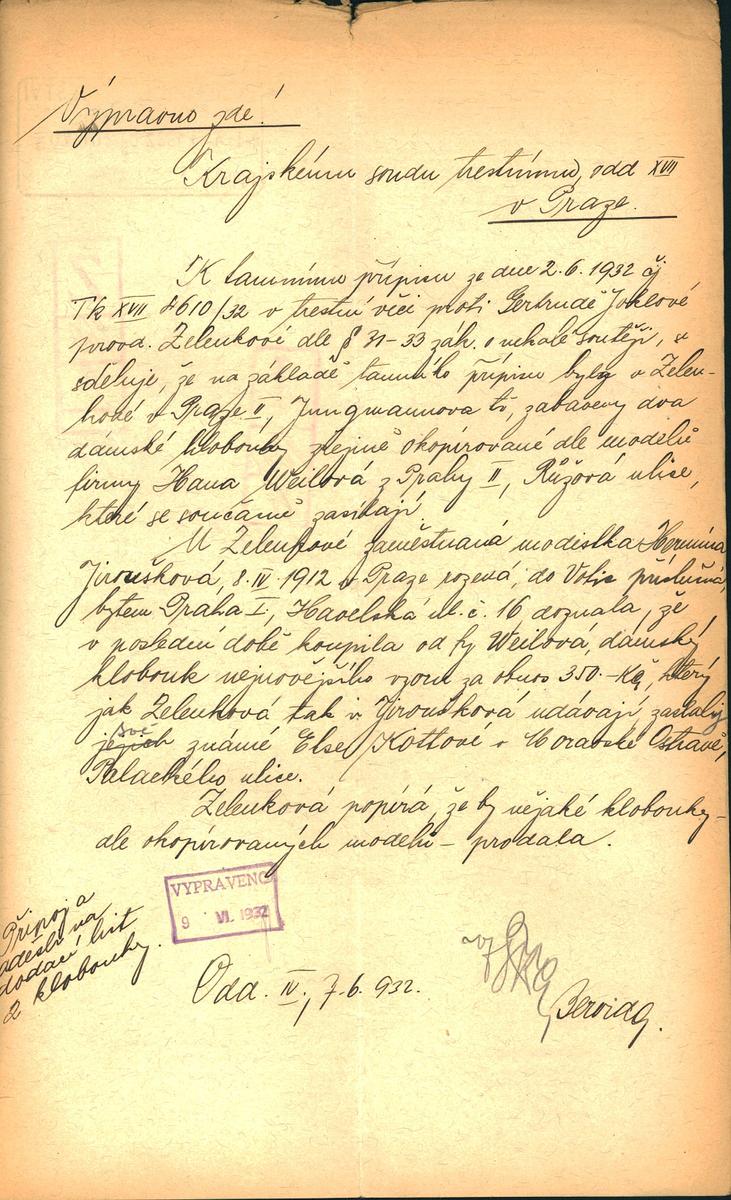 Výpravno zde!
Krajskému soudu trestnímu, odd XVII
v Praze.
K tamnímu přípisu ze dne 2.6.1932 čj
Tk XVII 8610/32 v trestní věci proti Gertrudě Joklové
provd. Zelenkové dle § 31–33 zák. o nekalé soutěži, se
sděluje, že na základě tamního přípisu byly v Zelen-
kové v Praze II, Jungmannova, zabaveny dva
dámské klobouky zřejmě okopírované dle modelů
firmy Hana Weilová z Prahy II, Růžová ulice,
které se současně zasílají.
U Zelenkové zaměstnaná modistka Hermína
Jiroušková, 8. IV. 1912 v Praze rozená, do Votic příslušná,
bytem Praha I, Havelská ul. č. 16, doznala, že
v poslední době koupila od fy Weilová, dámský
klobouk nejnovějšího vzoru za obnos 350.-Kč, který
jak Zelenková tak i Jiroušková udávají, zaslaly
své
jejich známé Else Kottové v Moravské Ostravě,
Palackého ulice.
Zelenková popírá, že by nějaké klobouky –
dle okopírovaných modelů – prodala.
VYPRAVENO
9 VI. 1932
Připoj a
na
dodací list
2 klobouky.
Odd. IV., 7.6.932.